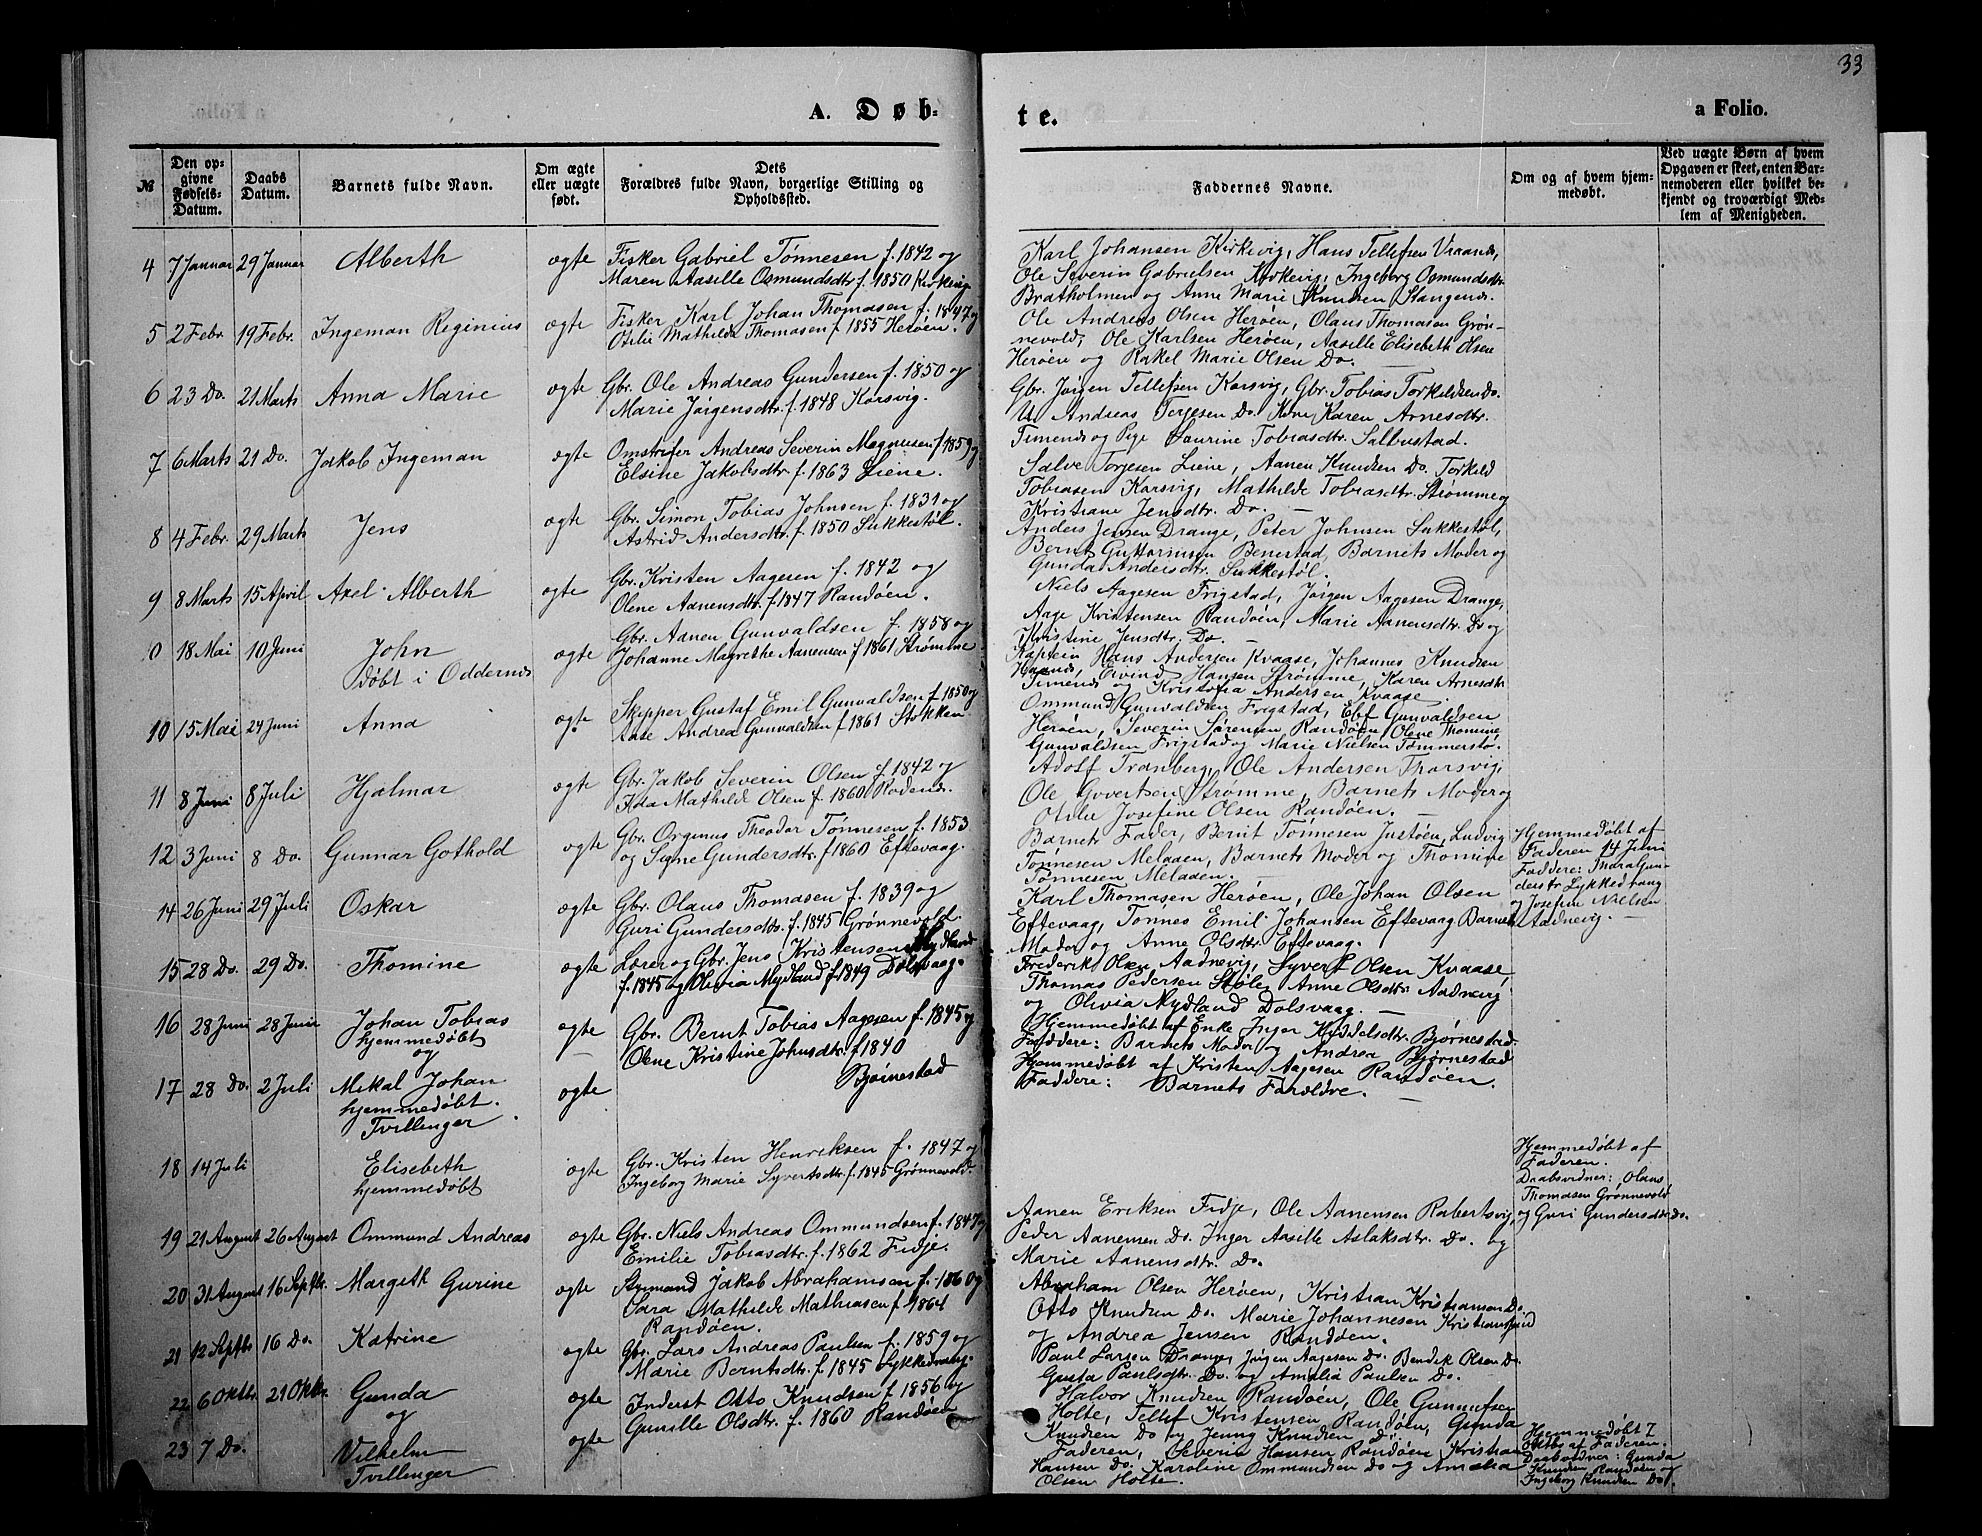 33
A. Døb-
te.
a Folio.
№
Den op-
givne
Fødsels-
Datum.
Daabs
Datum.
Barnets fulde Navn.
Om ægte
eller uægte
født.
Dets
Forældres fulde Navn, borgerlige Stilling og
Opholdssted.
Faddernes Navne.
Om og af hvem hjem-
medøbt.
Ved uægte Børn af hvem
Opgaven er skeet, enten Bar-
nemoderen eller hvilket be-
kjendt og troværdigt Med-
lem af Menigheden.
4 7 Januar 29 Januar Alberth ægte Fisker Gabriel Tønnesen f. 1842 og
Maren Aasille Osmundsdtr. f. 1850 Kirkevig
Karl Johansen Kirkevig, Hans Tellefsen Vraanes,
Ole Severin Gabrielsen Kirkevig, Ingeborg Osmundsdtr.
Bratholmen og Anne Marie Knudsen Stangenes.
5 2 Febr. 19 Febr. Ingeman Reginius ægte Fisker Karl Johan Thomasen f. 1847 og
Otilie Mathilde Thomasen f. 1855 Herøen.
Ole Andreas Olsen Herøen, Olaus Thomasen Grøn-
nevold, Ole Karlsen Herøen, Aasille Elisebeth Olsen
Herøen og Rakel Marie Olsen Do.
6 23 Do. 21 Marts Anna Marie ægte Gbr. Ole Andreas Gundersen f. 1850 og
Marie Jørgensdtr. f. 1848 Korsvig.
Gbr. Jørgen Tellefsen Korsvig, Gbr. Tobias Torkildsen Do.
U. Andreas Terjesen Do. Kone Karen Arnesdtr.
Timenes og Pige Laurine Tobiasdtr. Salbustad.
7 6 Marts 21 Do. Jakob Ingeman ægte Andreas Severin Magnusen f. 1859 og
Elsine Jakobsdtr. f. 1863 Liene.
Salve Torjesen Liene, Aanen Knudsen Do. Torkild
Tobiasen Korsvig, Mathilde Tobiasdtr. Strømme og
Kristiane Jensdtr. Do.
8 4 Febr. 29 Marts Jens ægte Gbr. Simon Tobias Johnsen f. 1831 og
Astrid Andersdtr. f. 1850 Sukkestøl.
Anders Jensen Drange, Peter Johnsen Sukkestøl,
Bernt Guttormsen Benestad, Barnets Moder og
Gunda Andersdtr. Sukkestøl.
9 8 Marts 15 April Axel Alberth ægte Gbr. Kristen Aagesen f. 1842 og
Olene Aanensdtr. f. 1847 Randøen.
Niels Aagesen Frigstad, Jørgen Aagesen Drange,
Aage Kristensen Randøen, Marie Aanensdtr. Do og
Kristine Jensdtr. Do.
0 18 Mai 10 Juni John ægte Gbr. Aanen Gunvaldsen f. 1858 og
døbt i Oddernes Johanne Magrethe Aanensen f. 1861 Strømme
Kaptein Hans Andersen Kvaase, Johannes Knudsen
Eivind Hansen Strømme, Karen Arnesdtr.
Timenes og Kristofia Andersen Kvaase
10 15 Mai 24 Juni Anna ægte Skipper Gustaf Emil Gunvaldsen f. 1850 og
Aase Andrea Gunvaldsen f. 1861 Stokken
Ommund Gunvaldsen Frigstad, Elef Gunvaldsen
Herøen, Severin Sørensen Randøen, Olene Thomine
Gunvaldsen Frigstad og Marie Nielsen Tømmerstø.
11 8 Juni 8 Juli Hjalmar ægte Gbr. Jakob Severin Olsen f. 1842 og
Ada Mathilde Olsen f. 1860 Rodenes.
Adolf Tranberg, Ole Andersen Thorsvig,
Ole Govertsen Strømme, Barnets Moder og
Otilie Josefine Olsen Randøen.
12 3 Juni 8 Do. Gunnar Gothold ægte Gbr. Orgenus Theodor Tønnesen f. 1853
og Signe Gundersdtr. f. 1860 Eftevaag.
Barnets Fader, Bernt Tønnesen Justøen, Ludvig
Tønnesen Melaaen, Barnets Moder og Thomine
Tønnesen Melaaen.
Hjemmedøbt af
Faderen 14 Juni
Faddere: Thara Gun-
dersdtr. Lykkedrang
og Josefine Nielsen
Aadnevig.
14 26 Juni 29 Juli Oskar ægte Gbr. Olaus Thomasen f. 1839 og
Guri Gundersdtr. f. 1845 Grønnevold.
Karl Thomasen Herøen, Ole Johan Olsen
Eftevaag, Tønnes Emil Johansen Eftevaag Barnets
Moder og Anne Olsdtr. Eftevaag.
15 28 Do. 29 Do. Thomine ægte Lærer og Gbr. Jens Kristensen Mydland
f. 1845 og Olivia Mydland f. 1849 Dolsvaag.
Frederik Olsen Aadnevig, Syvert Olsen Kvaase,
Thomas Pedersen Støle, Anne Olsdtr. Aadnevig
og Olivia Mydland Dolsvaag.
16 28 Juni 28 Juni Johan Tobias ægte Gbr. Bernt Tobias Aagesen f. 1845 og
hjemmedøbt Olene Kristine Johnsdtr. f. 1840
og Bjørnestad
Hjemmedøbt af Enke Inger Kyddelsdtr. Bjørnestad.
Faddere: Barnets Moder og Andrea Bjørnestad
17 28 Do. 2 Juli Mikal Johan ægte
hjemmedøbt.
Tvillinger
Hjemmedøbt af Kristen Aagesen Randøen.
Faddere: Barnets Forældre.
18 14 Juli Elisebeth ægte Gbr. Kristen Henriksen f. 1847 og
hjemmedøbt Ingeborg Marie Syvertsdtr. f. 1845 Grønnevold.
Hjemmedøbt af
Faderen.
Daabsvidner: Olaus
Thomasen Grønnevold
og Guri Gundersdtr. Do.
19 21 August 26 August Ommund Andreas ægte Gbr. Niels Andreas Ommundsen f. 1847 og
Emilie Tobiasdtr. f. 1862 Fidje.
Aanen Eriksen Fidje, Ole Aanensen Rabertsvig,
Peder Aanensen Do. Inger Aasille Aslaksdtr. Do. og
Marie Aanensdtr. Do.
20 31 August 16 Septbr. Margith Gurine ægte Styrmand Jakob Abrahamsen f. 1860 og
Sara Mathilde Mathiasen f. 1864
Randøen.
Abraham Olsen Herøen, Kristian Kristiansen Do.
Otto Knudsen Do. Marie Johannesen Kristiansand
og Andrea Jensen Randøen.
21 12 Septbr 16 Do. Katrine ægte Gbr. Lars Andreas Paulsen f. 1859 og
Marie Berntsdtr. f. 1845 Lykkedrang.
Paul Larsen Drange, Jørgen Aagesen Do. Bendik Olsen Do.
Gusta Paulsdtr. Do. og Amalia Paulsen Do.
22 6 Oktbr. 21 Oktbr. Gunda ægte Inderst Otto Knudsen f. 1856 og
og Gunille Olsdtr. f. 1860 Randøen
Halvor Knudsen Randøen, Ole Gunnufsen
Holte, Tellef Kristensen Randøen, Gunda
Knudsen Do og Jenny Knudsen Do.
23 7 Do. Vilhelm ægte
Tvillinger
Faderen, Severin Hansen Randøen, Kristian
Hansen Do. Karoline Ommundsen Do og Amalia
Olsen Holte.
Hjemmedøbt 7
Oktbr af Faderen.
Daabsvidner: Gunda
Knudsen Randøen og
Ingeborg Knudsen Do.